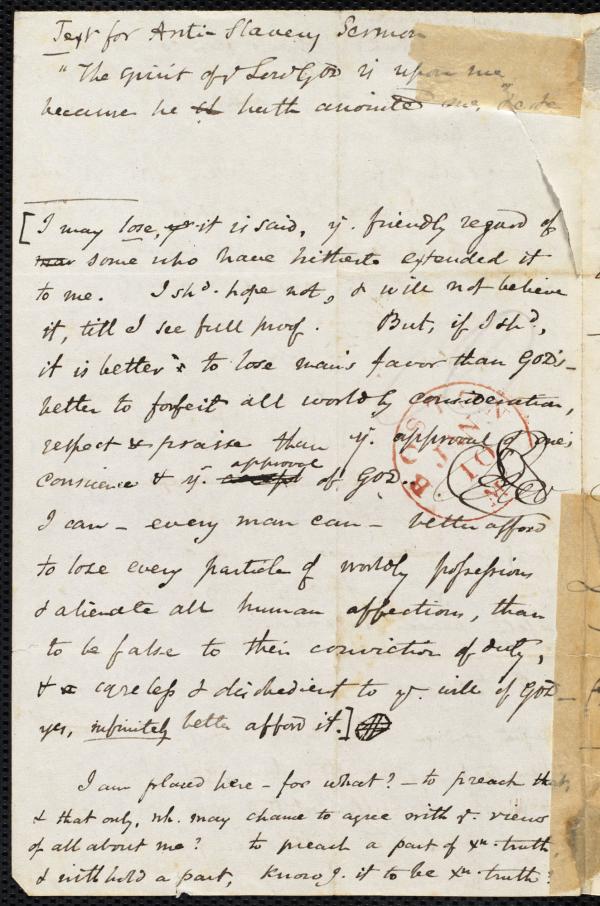 Text for Anti-Slavery Sermon
"The spirit of ye Lord God is upon me
because he hath anointed me, &c &c
[I may lose, it is said, ye. friendly regard of
some who have hitherto extended it
to me. I shd. hope not, & will not believe
it, till I see full proof. But, if I shd.,
it is better to lose man's favor than God's -
better to forfeit all worldly consideration,
respect & praise than ye. approval of one's
conscience & ye. approval of God.
BOSTON JAN 10
I can - every man can - better afford
to lose every particle of worldly possessions
& alienate all human affections, than
to be false to their conviction of duty,
& careless & disobedient to ye. will of God -
yes, infinitely better afford it.]
I am placed here - for what? - to preach that,
& that only, wh. may chance to agree with ye. views
of all about me? to preach a part of xn. truth,
& withhold a part, knowg. it to be xn. truth?